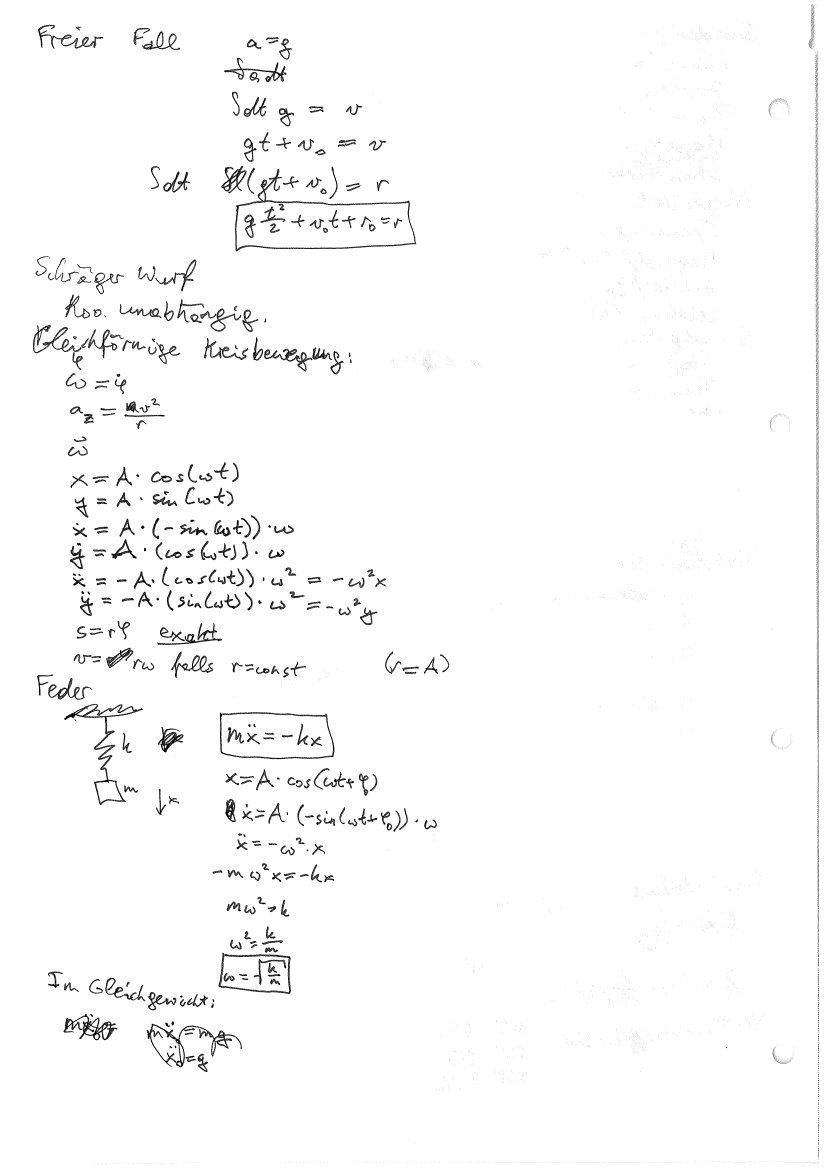 Freier Fall a=g
∫a dt
∫dt g = v
gt + v₀ = v
∫dt (gt + v₀) = r
g t²/2 + v₀t + r₀ = r
Schräger Wurf
Koo. unabhängig.
Gleichförmige Kreisbewegung:
φ
ω = φ̇
a_z = mv²/r
ω⃗
x = A · cos(ωt)
y = A · sin(ωt)
ẋ = A · (-sin(ωt)) · ω
ẏ = A · (cos(ωt)) · ω
ẍ = -A · (cos(ωt)) · ω² = -ω²x
ÿ = -A · (sin(ωt)) · ω² = -ω²y
s = rφ exakt
v = rω falls r=const (r=A)
Feder
k
m
x
mẍ = -kx
x = A · cos(ωt+φ₀)
ẋ = A · (-sin(ωt+φ₀)) · ω
ẍ = -ω² · x
-mω²x = -kx
mω² = k
ω² = k/m
ω = √(k/m)
Im Gleichgewicht:
mẍ₀ = mg
ẍ₀ = g